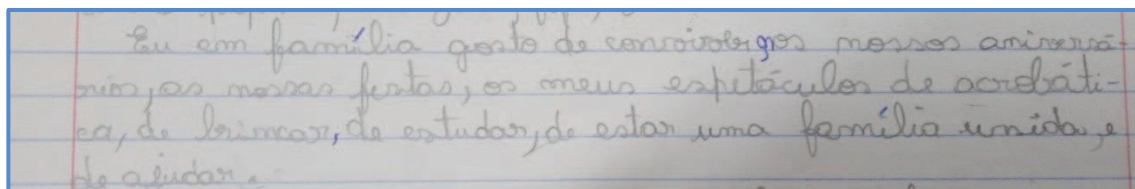 Eu em família gosto de conviver, nos nossos aniversá-
rios, as nossas festas, os meus espetáculos de acrobáti-
ca, de brincar, de estudar, de estar uma família unida, e
de ajudar.